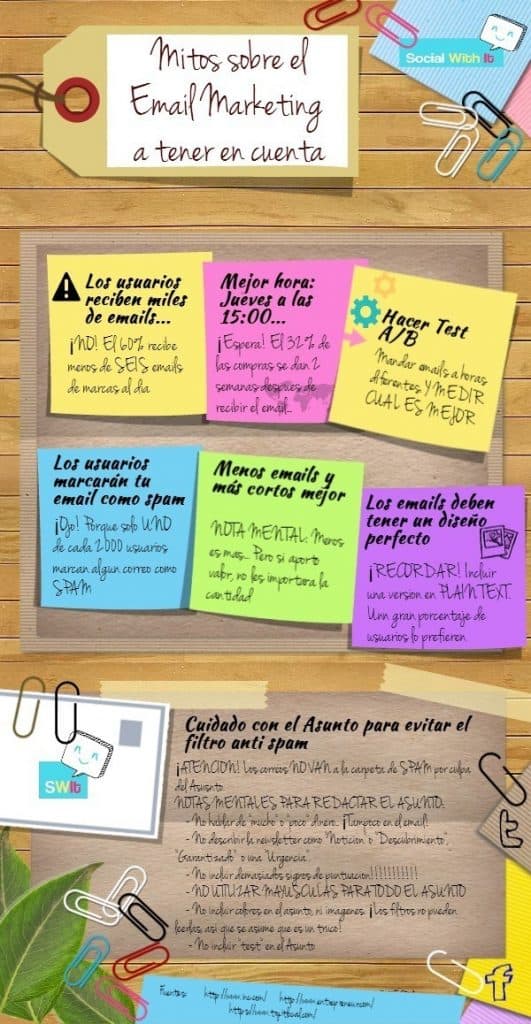 Mitos sobre el
Email Marketing
a tener en cuenta
Social With It
Los usuarios
reciben miles
de emails...
¡NO! El 60% recibe
menos de SEIS emails
de marcas al dia
Mejor hora:
Jueves a las
15:00...
¡Espera! El 32% de
las compras se dan 2
semanas despues de
recibir el email...
Hacer Test
A/B
Mandar emails a horas
diferentes y MEDIR
CUAL ES MEJOR
Los usuarios
marcarán tu
email como spam
¡Ojo! Porque solo UNO
de cada 2000 usuarios
marcan algun correo como
SPAM
Menos emails y
más cortos mejor
NOTA MENTAL: Menos
es mas... Pero si aporto
valor, no les importara la
cantidad
Los emails deben
tener un diseño
perfecto
¡RECORDAR! Incluir
una version en PLAIN TEXT.
Unn gran porcentaje de
usuarios lo prefieren
SWIt
Cuidado con el Asunto para evitar el
filtro anti spam
¡ATENCION! Los correos NO VAN a la carpeta de SPAM por culpa
del Asusnto
NOTAS MENTALES PARA REDACTAR EL ASUNTO:
- No hablar de "mucho" o "poco" dinero. ¡Tampoco en el email!
- No describir la newsletter como "Noticion" o "Descubrimiento",
"Garantizado" o una "Urgencia".
- No incluir demasiados signos de puntuacion!!!!!!!!!!!!
- NO UTILIZAR MAYUSCULAS PARA TODO EL ASUNTO
- No incluir cobros en el asunto, ni imagenes. ¡Los filtros no pueden
leerlas, asi que se asume que es un truco!
- No incluir "test" en el Asunto
Fuentes: http://www.inc.com/ http://www.entrepreneur.com/